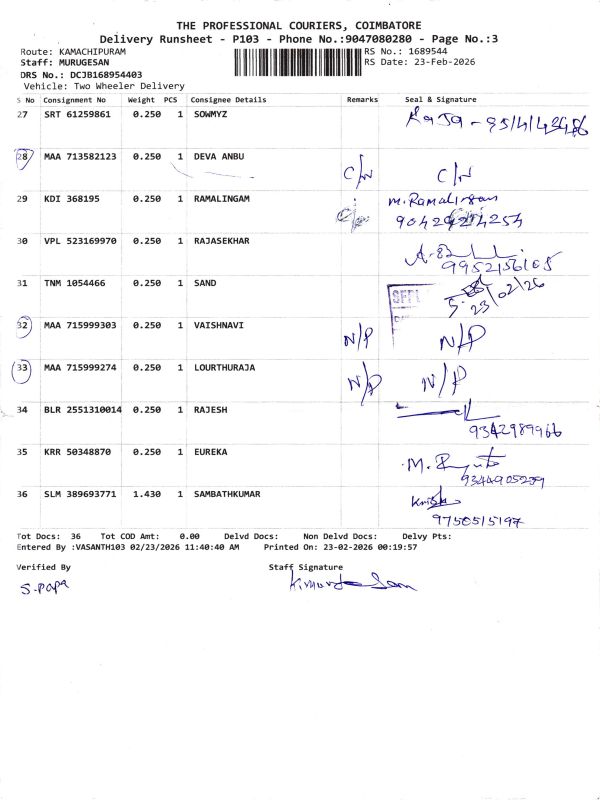 THE PROFESSIONAL COURIERS, COIMBATORE
Delivery Runsheet - P103 - Phone No.:9047080280 - Page No.:3
Route: KAMACHIPURAM RS No.: 1689544
Staff: MURUGESAN RS Date: 23-Feb-2026
DRS No.: DCJB168954403
Vehicle: Two Wheeler Delivery
S No Consignment No Weight PCS Consignee Details Remarks Seal & Signature
27 SRT 61259861 0.250 1 SOWMYZ
28 MAA 713582123 0.250 1 DEVA ANBU C/N C/N
29 KDI 368195 0.250 1 RAMALINGAM M.Ramalingam
30 VPL 523169970 0.250 1 RAJASEKHAR
9952156105
31 TNM 1054466 0.250 1 SAND
23/02/26
32 MAA 715999303 0.250 1 VAISHNAVI N/P N/P
33 MAA 715999274 0.250 1 LOURTHURAJA N/P N/P
34 BLR 2551310014 0.250 1 RAJESH
9342989966
35 KRR 50348870 0.250 1 EUREKA
9344905209
36 SLM 389693771 1.430 1 SAMBATHKUMAR
9750515197
Tot Docs: 36 Tot COD Amt: 0.00 Delvd Docs: Non Delvd Docs: Delvy Pts:
Entered By :VASANTH103 02/23/2026 11:40:40 AM Printed On: 23-02-2026 00:19:57
Verified By Staff Signature
S.Papa